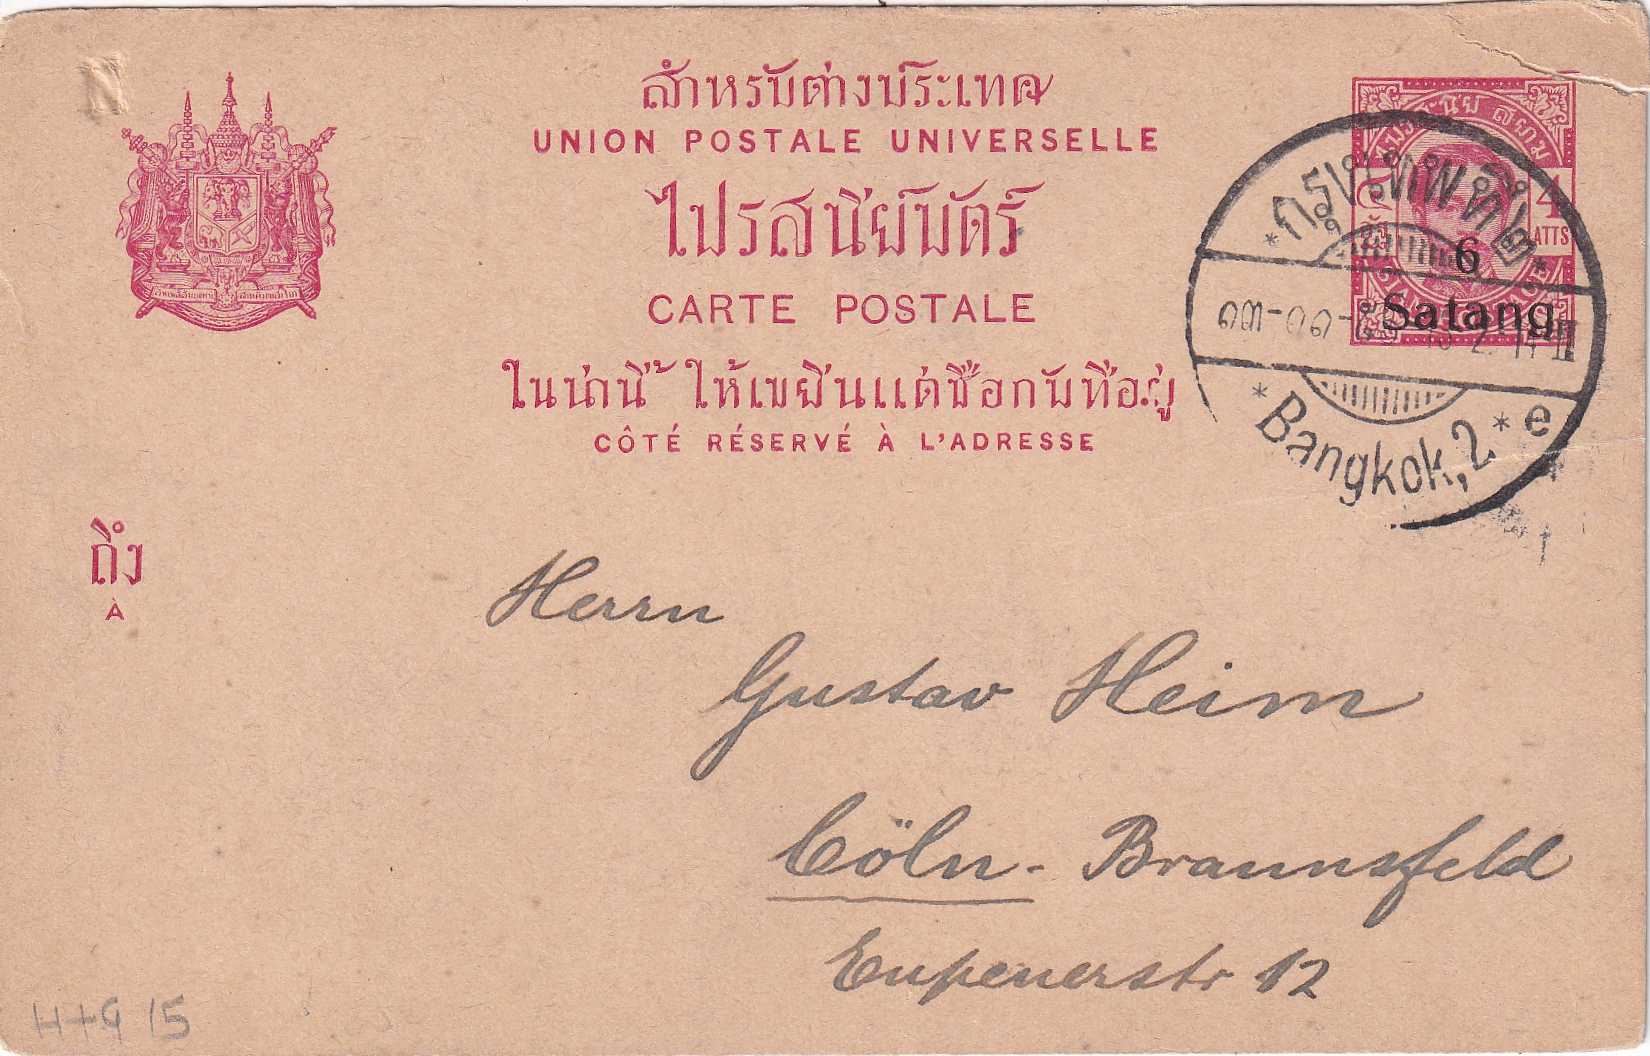 N
สำหรับต่างประเทศ
UNION POSTALE UNIVERSELLE
ไปรสนีย์บัตร์
CARTE POSTALE
ในน่านี้ ให้เขียนแต่ชื่อกับที่อยู่
CÔTÉ RÉSERVÉ À L'ADRESSE
สยาม
4
ATTS
6
Satang
กรุงเทพที่๒
๑๓-๑๑-
13 2. 14 II
Bangkok, 2 e
ถึง
À
Herrn
Gustav Heim
Cöln-Braunsfeld
Eupenerstr 12
H+G 15